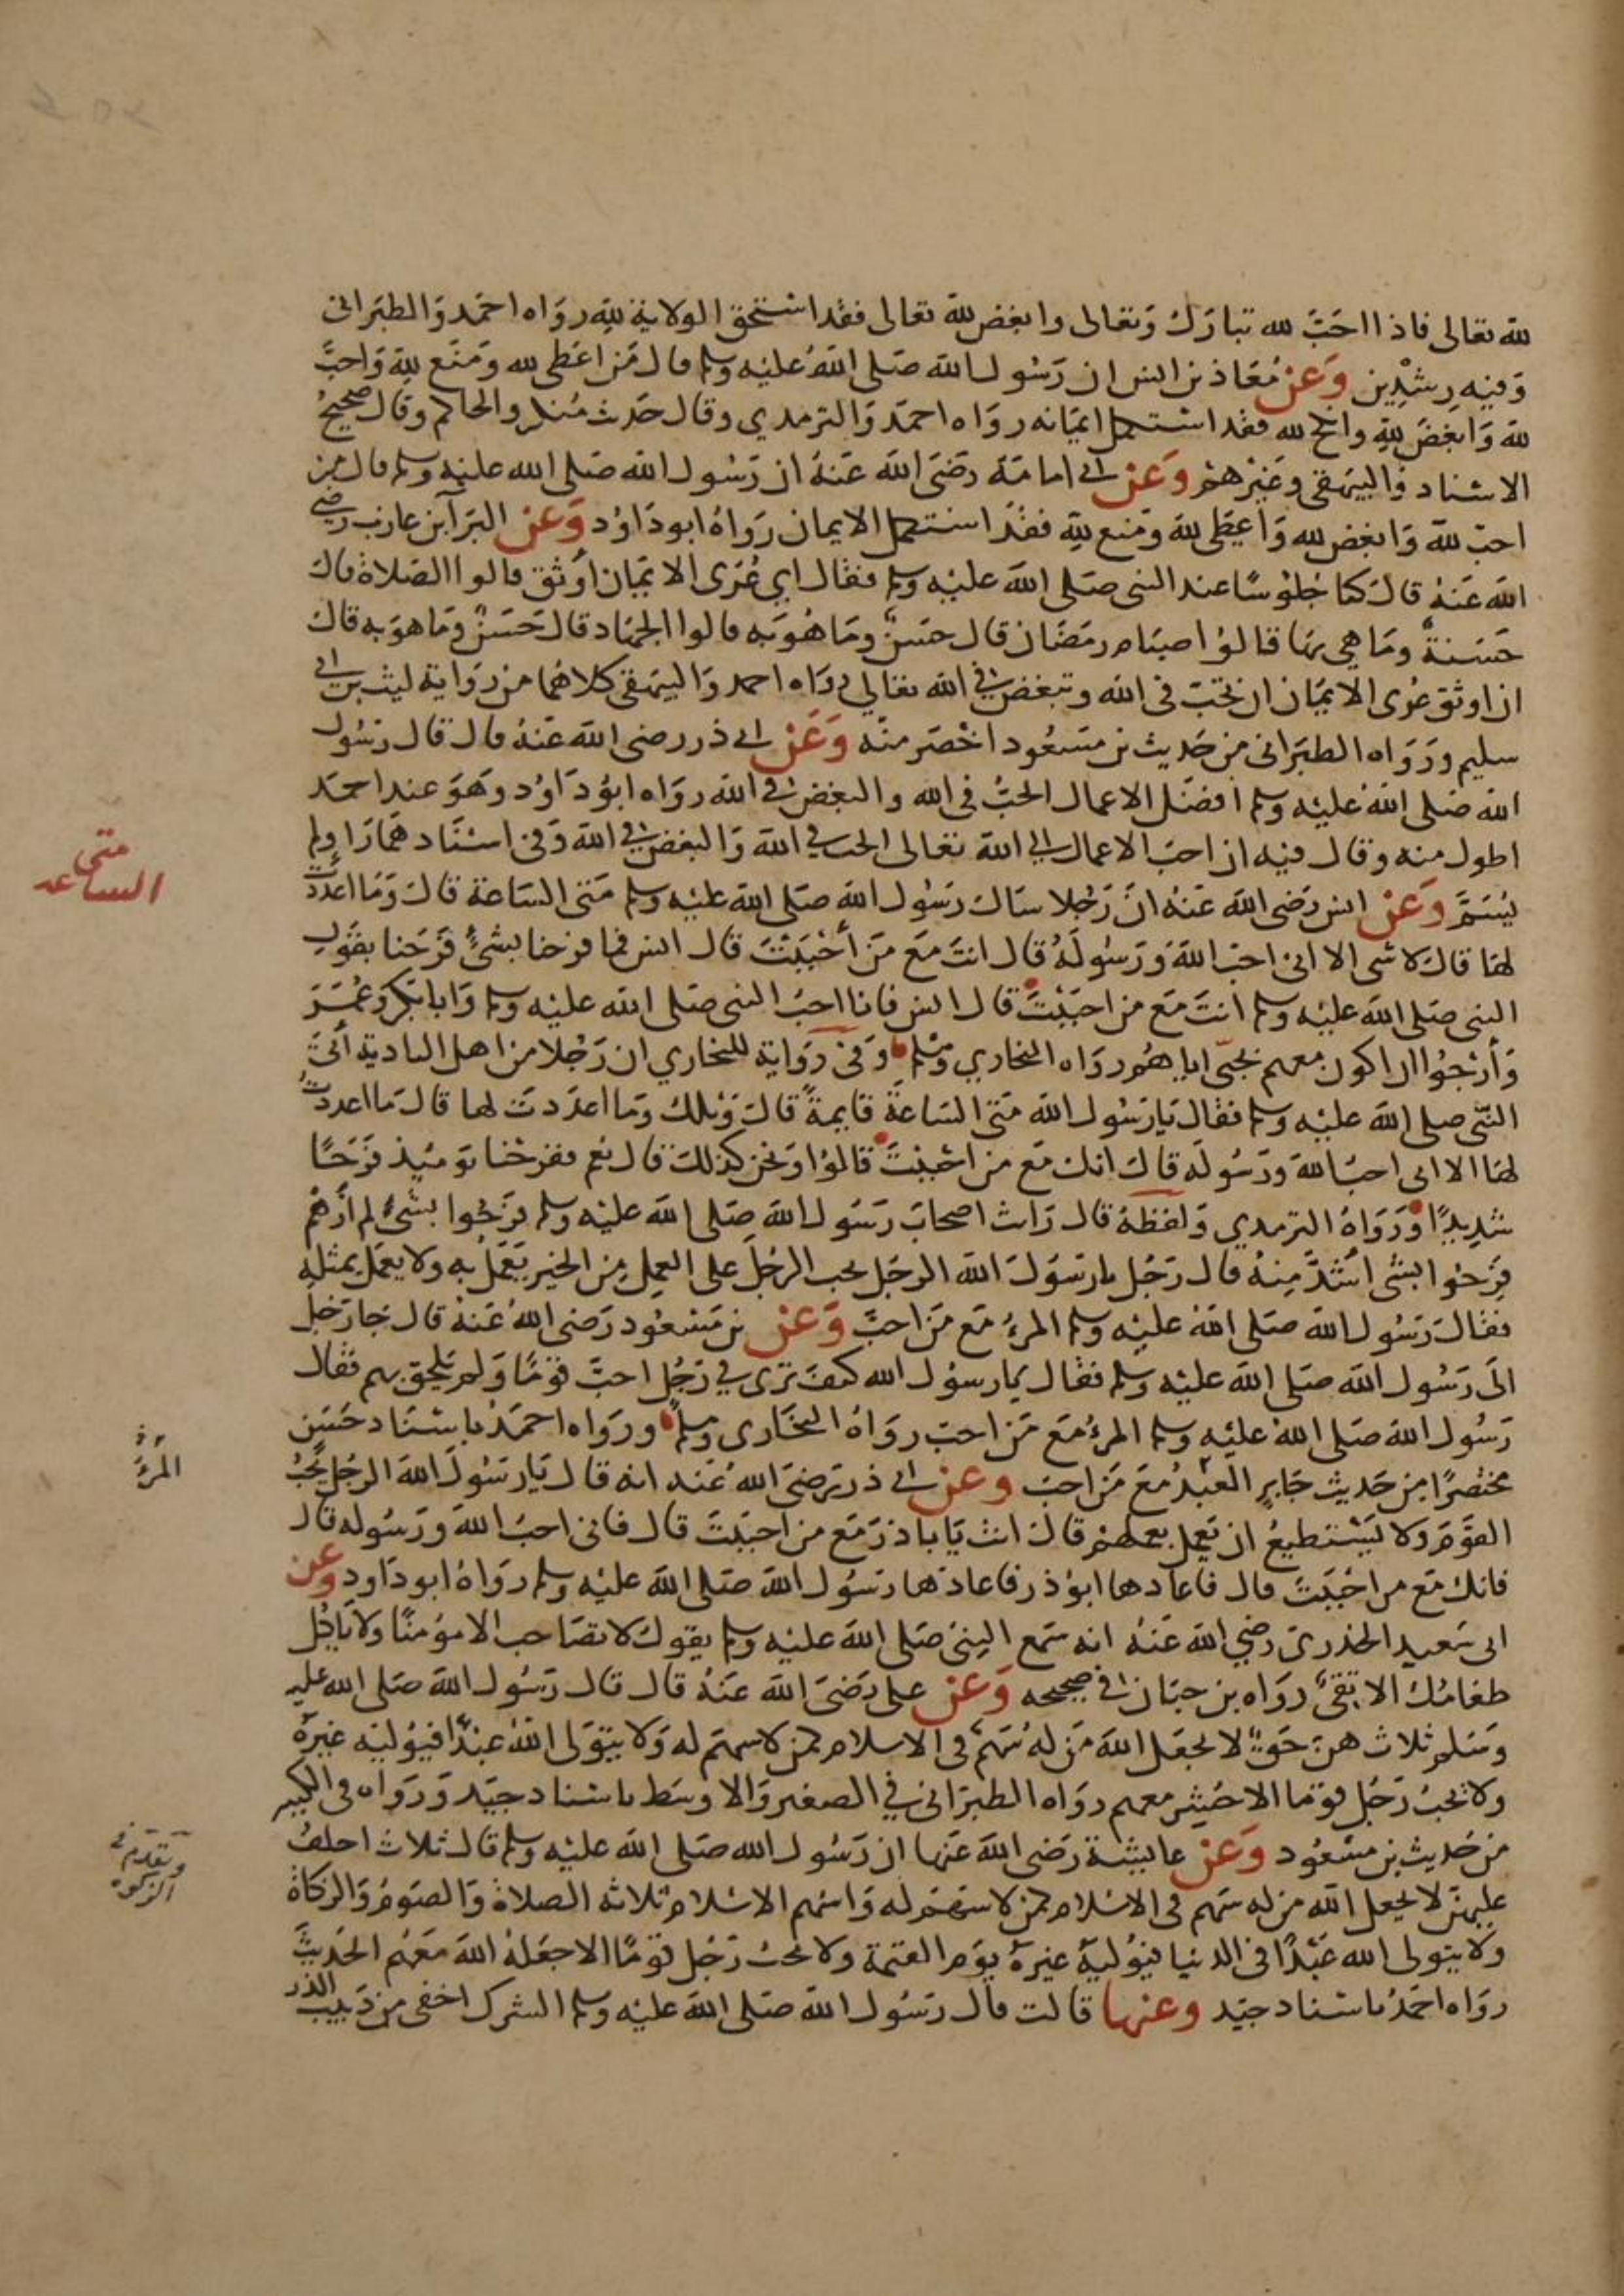 لله تعالى فاذا احَبّ لله تبارَك وَتعالى وابغض لله تعالى فقد استحق الولاية لله رواه احمد وَالطبَرانى
وَفيه رِشْدِين وَعَن مُعَاذ بن انس ان رَسُول الله صَلى اللهُ عليْه وسلم قال مَن اعَطى لله وَمنَع للهِ وَاحبّ
لله وَابغضَ للهِ وانكح لله فقد استكمل ايمَانه رواه احمدَ وَالترمدي وقال حَديث مُنكر والحاكم وقال صحيحُ
الاسناد وَالبيهقى وغيْرهمْ وَعَن ابى امامَة رضَىَ الله عَنهُ ان رَسُول الله صَلى الله عليْه وسلم قال مَن
احبّ لله وَابغض لله وَاعطى لله وَمنع للهِ فقدَ استكمل الايمان رَوَاهُ ابو دَاوُد وَعَن البَرآ بن عازب رضى
الله عَنهُ قال كنا جُلوسًا عند النبى صَلى اللهَ عليْه وسلم فقال اي عُرَى الايمَان أوثق قالوا الصَلاة قال
حَسَنة وَما هي بهَا قالوُا صيَام رمضَان قال حسَنٌ ومَا هُوَ به قالوا الجهَاد قال حَسَنٌ وَمَا هوَ به قال
ان اوثق عُرى الايمَان ان تحبّ فى الله وتبغض فى الله تعَالى رواه احمد وَالبيهقى كلاهُما من روَاية ليث بن ابى
سليم ورَوَاه الطبَرانى من حَديث بن مسَعُود اخْصَر منْه وَعَن ابى ذر رضى الله عَنهُ قال قال رسُول
الله صَلى اللهُ عَليْه وسلم افضَل الاعمال الحبُ فى الله والبغض فى الله رواه ابوُ دَاوُد وَهوَ عند احمَد
اطول منه وقال فيه ان احبَ الاعمال الى الله تعَالى الحب في الله وَالبغض فى الله وَفى اسنَاد همَا رَاو لم
يُسَمَّ وَعَن انس رَضى اللهَ عَنهُ انَ رَجُلا سَال رَسُول الله صَلى اللهَ عليْه وسلم مَتى السَاعة قال وَمَا اعدَدتَ
لهَا قال لا شى الا انى احبّ الله وَرَسُوله قال انتَ مَعَ مَن أحْبَبْتَ قال انس فما فرحنا بشئ فَرَحَنا بقَول
النبى صَلى الله عليْه وسلم انتَ مَع من احبَبْتَ قال انس فانا احبُ النبى صَلى الله عليْه وسلم وَابا بكر وعُمَرَ
وَأرْجُوا ان اكون معهم بحبّى اياهمُ رواه البخاري ومُسْلم وَفى رَوَاية للبخاري ان رَجُلا من اهل البادية أتىَ
النّبى صلى الله عليْه وسلم فقال يَا رسُول الله مَتى السَاعةُ قايمةً قال وَيْلك وَما اعدَدتَ لها قال مَا اعددتُ
لهَا الا انى احبّ الله ورَسُوله قال انك مَع من احْبَبْتَ قالوُا وَنحن كذلك قال نعَم ففرحْنا يَوميُذ فَرَحًا
شديدًا وَرَوَاهُ الترمدي وَلفظهُ قال رَايت اصحابَ رَسَول الله صَلى الله عليْه وسلم فرَحُوا بشئٍ لم أرَهُمْ
فرَحُوا بشى اشَدّ مِنهُ قال رَجُل يا رَسَوُل الله الرجُل يحب الرجُلَ على العمل مِن الخير يَعمَل به ولا يعمَل بمثلِه
فقال رَسُول الله صَلى الله عليْه وسلم المرءُ مَع مَن احبَّ وَعَن بن مَسْعُود رَضى اللهُ عَنهُ قال جَا رَجلُ
الىَ رَسُول الله صَلى الله عليْه وسلم فقال يا رسوُل الله كيف ترى في رَجُل احبّ قوْمًا وَلم يَلحق بهم فقال
رَسُول الله صَلى اللهُ عليْه وسلم المرءُ مَع مَن احبّ روَاهُ البخَارى ومُسلم وروَاه احمَدُ باسنَاد حَسَن
مختصرًا من حَديث جَابرٍ العَبْدُ معَ مَن احبّ وعن ابى ذر رَضىَ اللهُ عَنه انه قال يَا رسَوُلَ الله الرجُل يُحبُ
القوَمَ وَلا يَسْتطيعُ ان يَعمل بعملهمْ قال انت يَا ابا ذرَ مَع من احبَبتَ قال فانى احبُ اللهَ وَرَسُوله قال
فانك مَع من احْبَبتَ قال فاعادها ابوُ ذر فاعادَها رسُول الله صَلى الله عليْه وسلم روَاهُ ابو دَاود وعن
ابى سَعيد الخدرىَ رضيَ الله عَنهُ انه سَمع النبىَ صَلى الله عليْه وسلم يقول لا تصَاحب الا مؤمنًا ولا يَاكُل
طعَامُك الا تقىٌ روَاه بن حبَان فى صحيحه وَعَن على رَضىَ الله عَنهُ قال قال رَسُول الله صَلى الله عليه
وَسَلم ثلاث هنَ حَقٌ لا يجعَل اللهَ مَن لهُ سَهمٌ فى الاسلام كمن لا سهمَ له وَلا يتوَلى اللهُ عبدًا فيُوليَه غيرهُ
ولا يحبُ رَجُل قومًا الا حُشِر معهم روَاه الطبرَانى في الصغير وَالاوسَط باسناد جيّد وَرَوَاه فى الكبير
من حَديث بن مسَعُود وَعَن عايشة رَضى اللهَ عَنها ان رَسُول الله صَلى الله عليْه وسلم قال ثلاث احلفُ
عليهنّ لا يجعل الله من له سَهم فى الاسْلام كمن لا سَهمَ له وَاسهم الاسْلام ثلاثه الصلاة وَالصَومُ وَالزكاة
ولا يتولى الله عَبْدًا فى الدنيا فيُوليَهُ غيرهُ يوَم القيمة ولا يحبُ رَجُل قومًا الا جعَلهُ اللهَ مَعَهُم الحَديثَ
روَاه احمَدُ باسناد جيّد وعنها قالت قال رسَوُل الله صَلى الله عليْه وسلم الشرك اخفى من دَبيب الذر
متى
الساعه
المرءُ
وتقدم فى
الزكوة